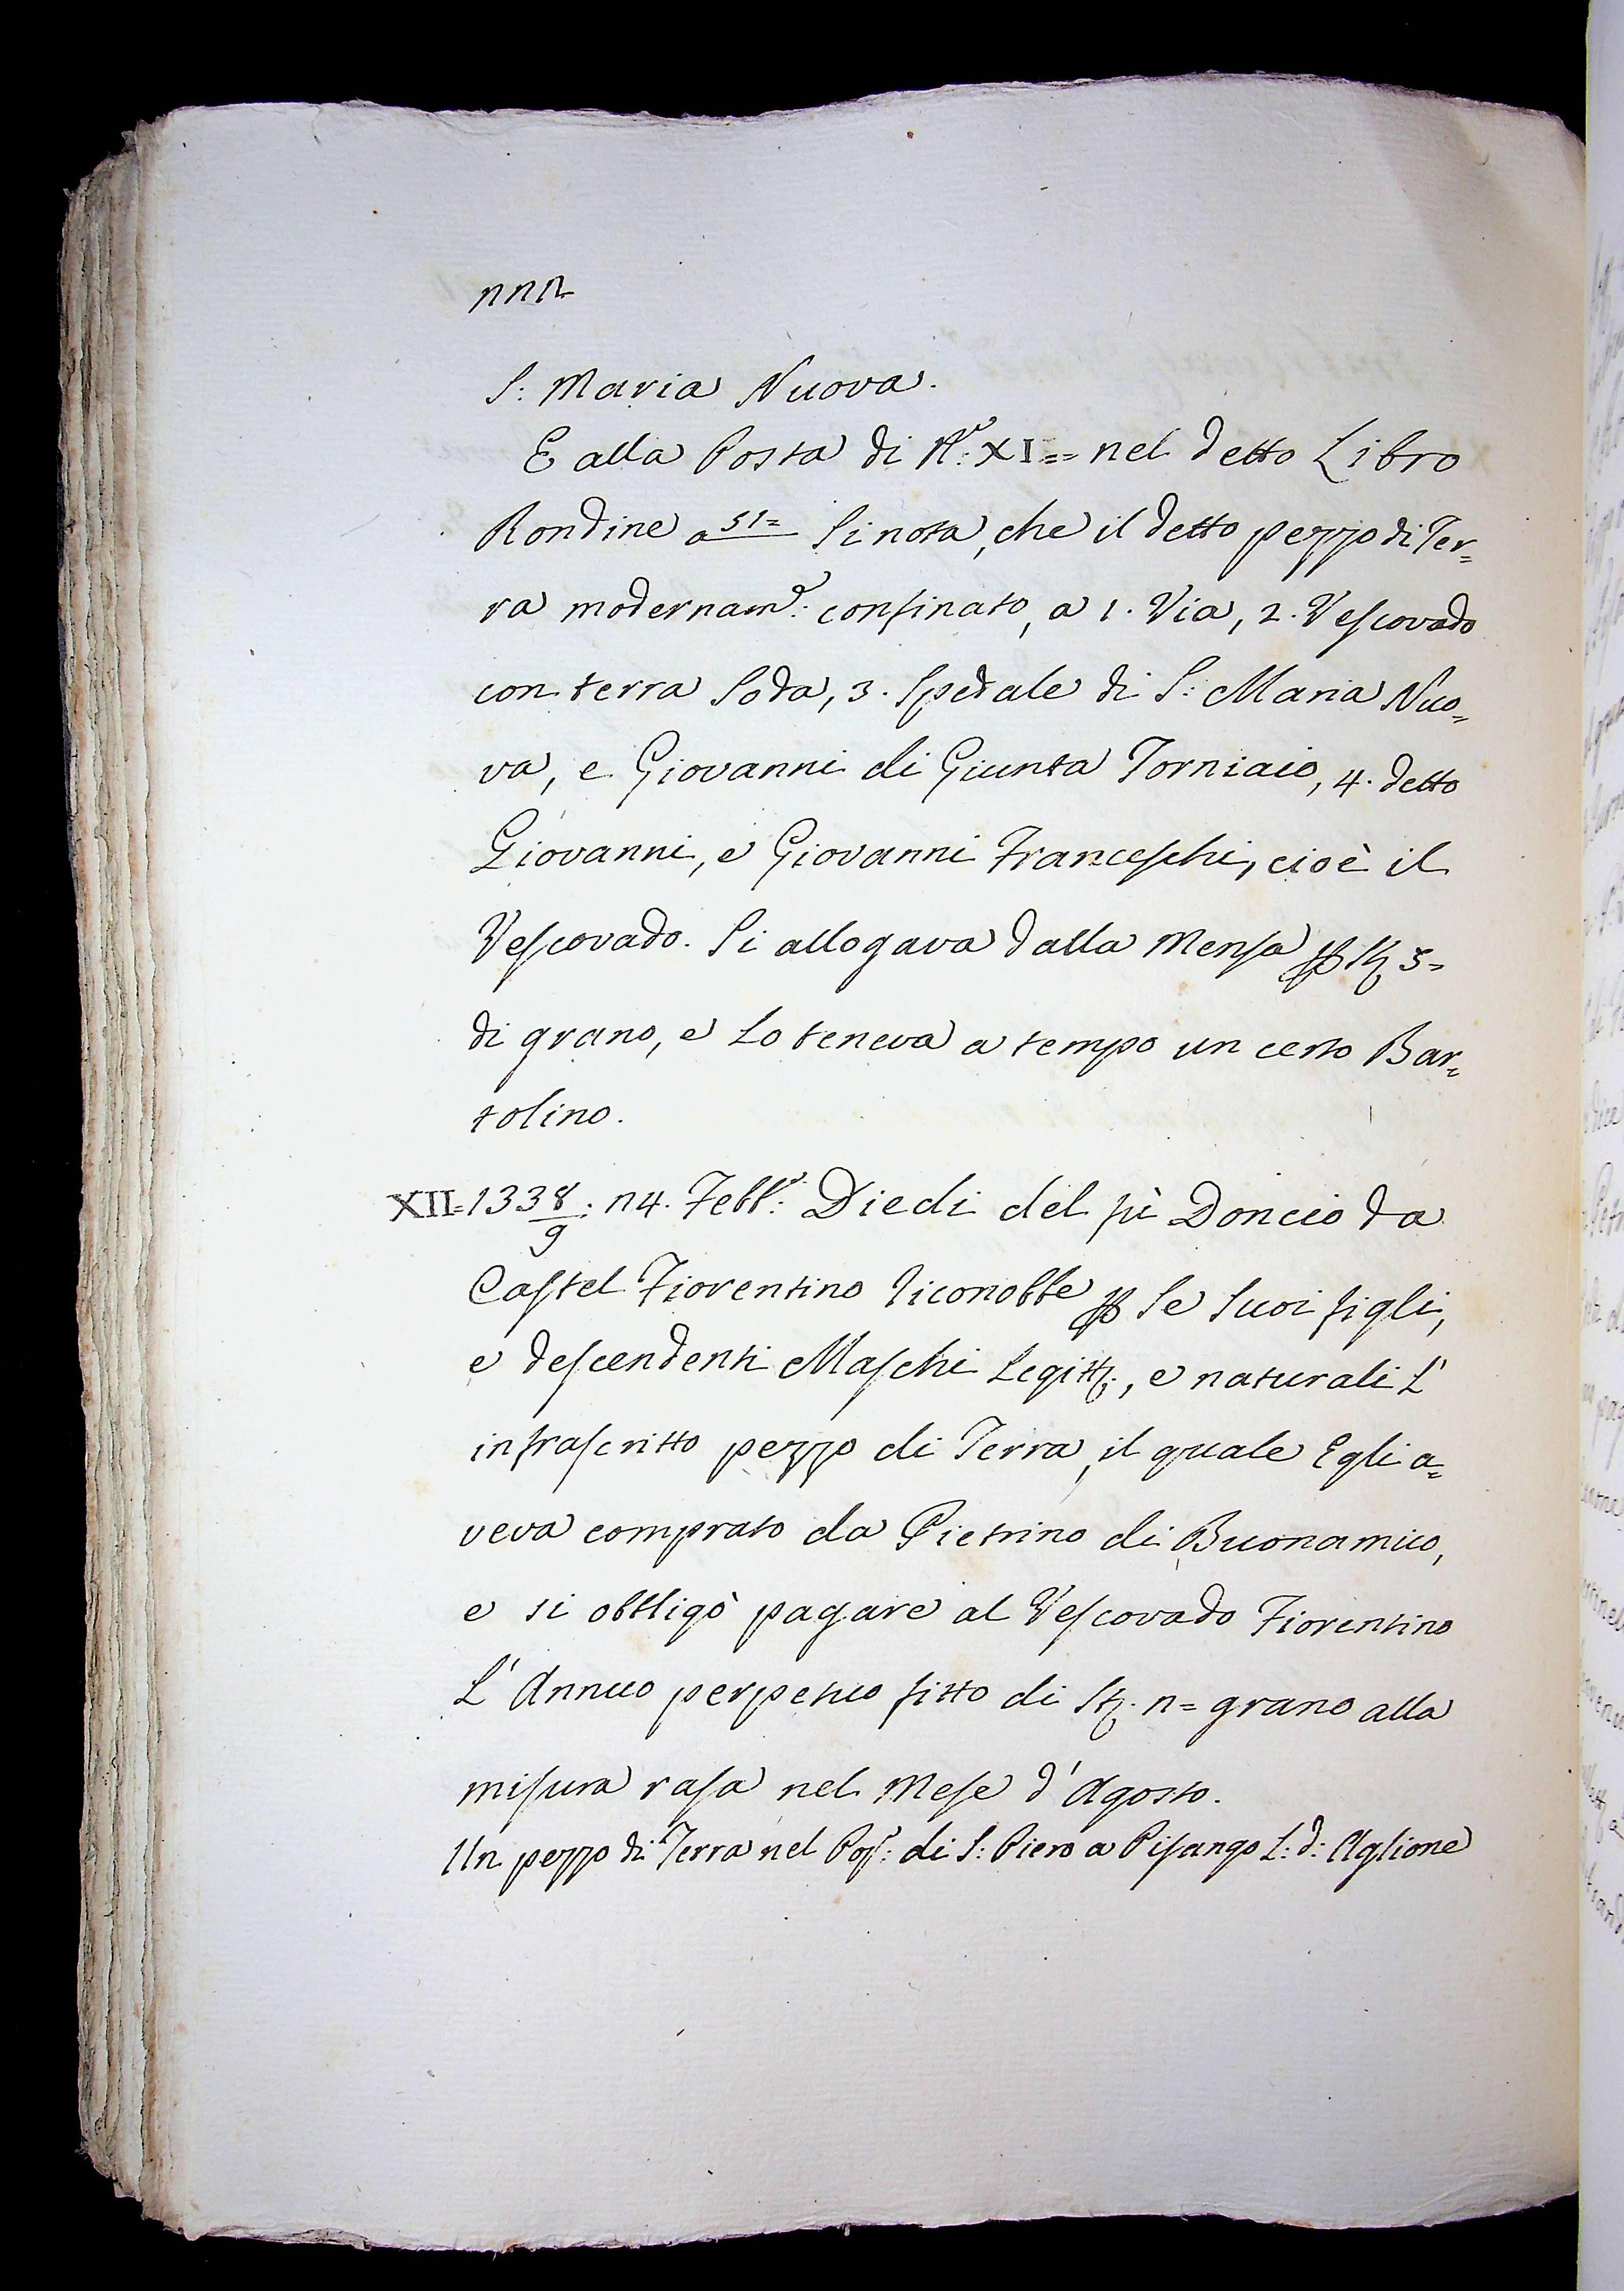 S: Maria Nuova.
E alla Posta di N.º XI= nel detto Libro
Rondine a 51= Si nota, che il detto pezzo di Ter=
ra modernam.e: confinato, a 1. Via, 2. Vescovado
con terra Soda, 3. Spedale di S: Maria Nuo=
va, e Giovanni di Giunta Torniaio, 4. detto
Giovanni, e Giovanni Franceschi, cioè il
Vescovado. Si allogava dalla Mensa p Stz 5=
di grano, e Lo teneva a tempo un certo Bar=
tolino.
XII= 1338/9: 14. Febb.o: Diedi del fù Doncio da
Castel Fiorentino riconobbe p Se Suoi figli,
e descendenti Maschi Legitt:i, e naturali L'
infrascritto pezzo di Terra, il quale Egli a=
veva comprato da Pietrino di Buonamico,
e si obbligò pagare al Vescovado Fiorentino
L'Annuo perpetuo fitto di St. 1= grano alla
misura rasa nel Mese d'Agosto.
Un pezzo di Terra nel Pop.o: di S: Piero a Pisango L: d: Aglione